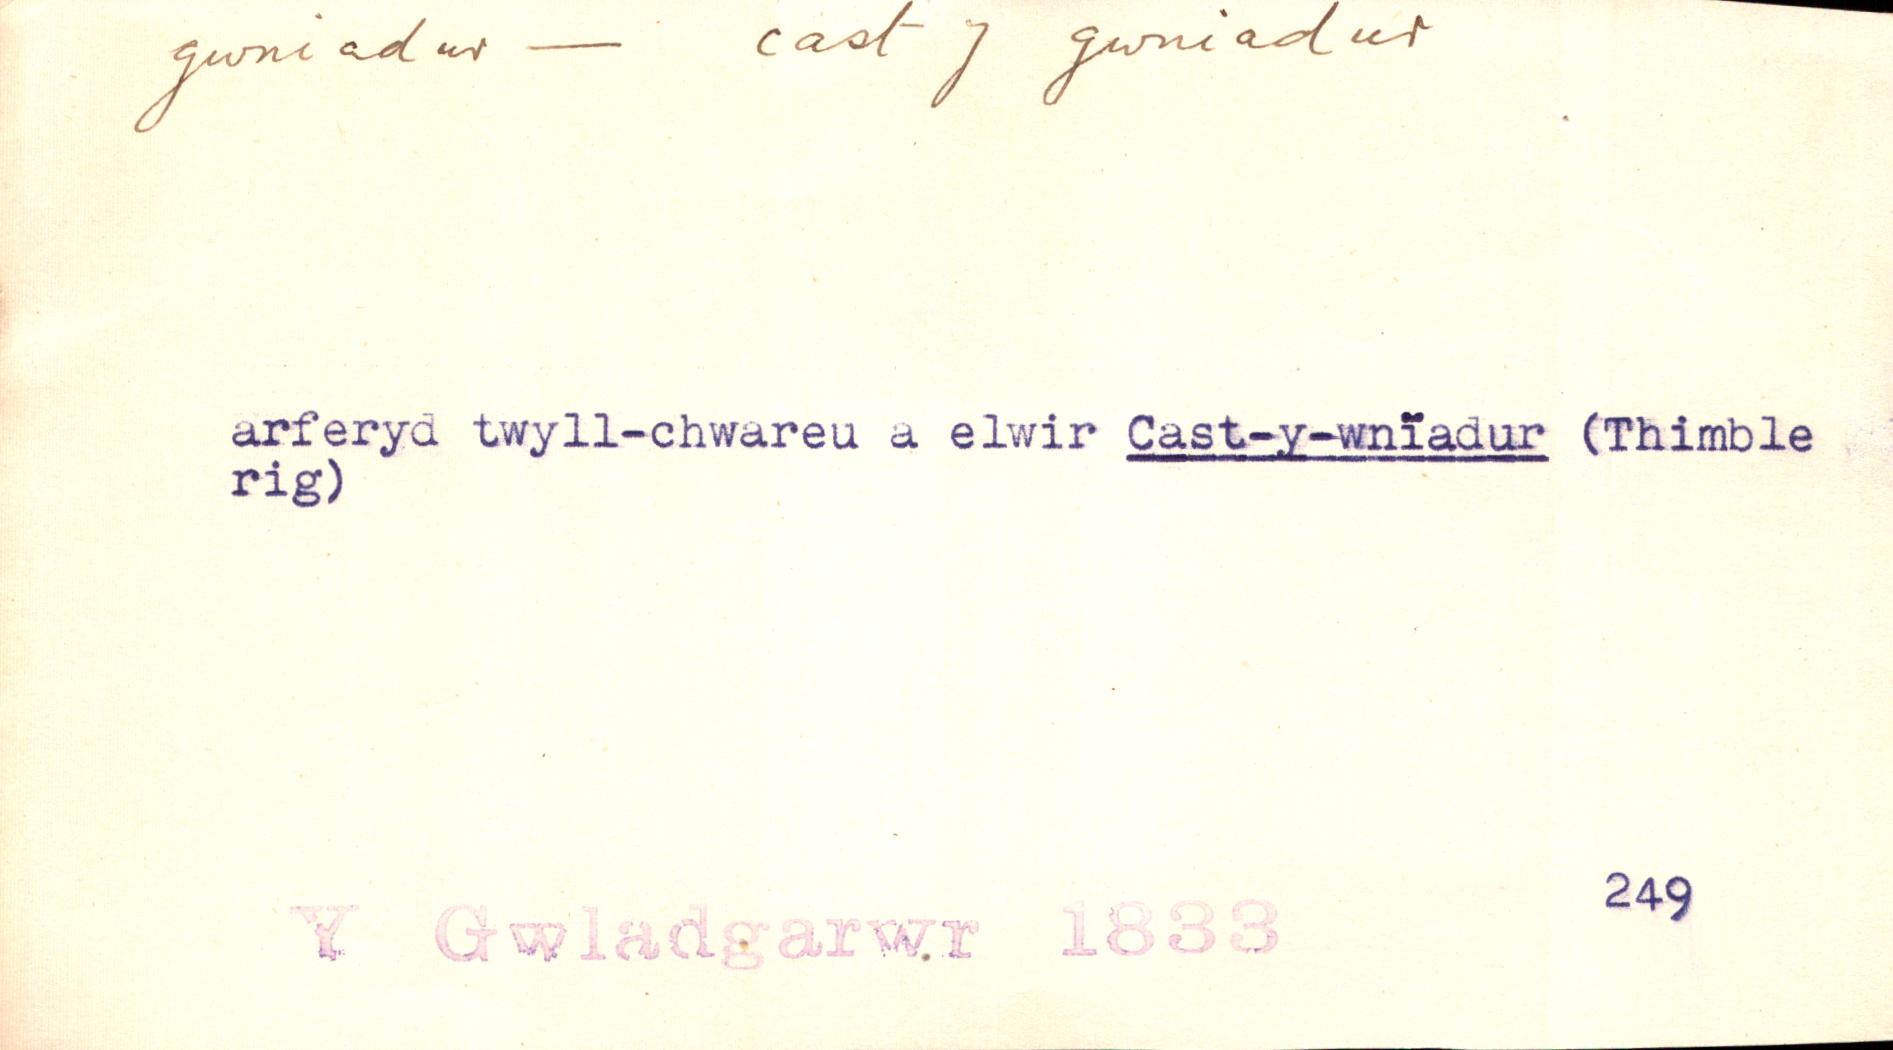 gwniadur — cast y gwniadur
arferyd twyll-chwareu a elwir Cast-y-wnïadur (Thimble
rig)
249
Y Gwladgarwr 1833